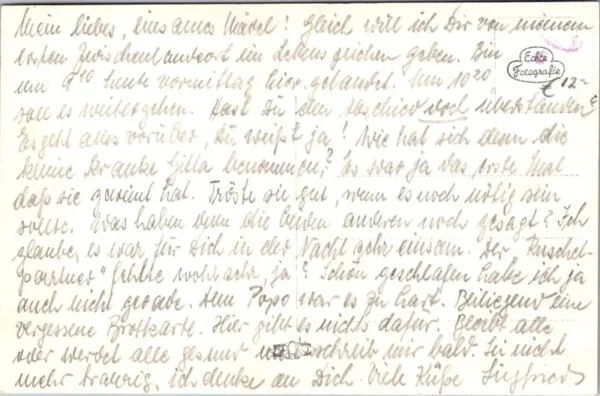 Mein liebes, armes Mädel! Gleich will ich Dir von meinem
ersten ein Lebenszeichen geben. Bin
um 9¹⁰ heute vormittag hier gelandet. Um 10²⁰
Echte
Fotografie
€ 12-
soll es weitergehen. Hast Du den Abschied noch überstanden?
Es geht alles vorüber, Du weißt ja! Wie hat sich denn die
kleine kranke benommen? Es war ja das erste Mal
daß sie geweint hat. Tröste sie gut, wenn es noch nötig sein
sollte. Was haben denn die beiden anderen noch gesagt? Ich
glaube, es war für Dich in der Nacht sehr einsam. Der "Kuschel-
partner" fehlte wohl sehr, ja? Schön geschlafen habe ich ja
auch nicht gerade. Dem Popo war es zu hart. Beiliegend eine
vergessene Brotkarte. Hier gibt es nichts dafür. Bleibt alle
oder werdet alle gesund schreib mir bald. Sei nicht
mehr traurig, ich denke an Dich. Viele Küße Siegfried